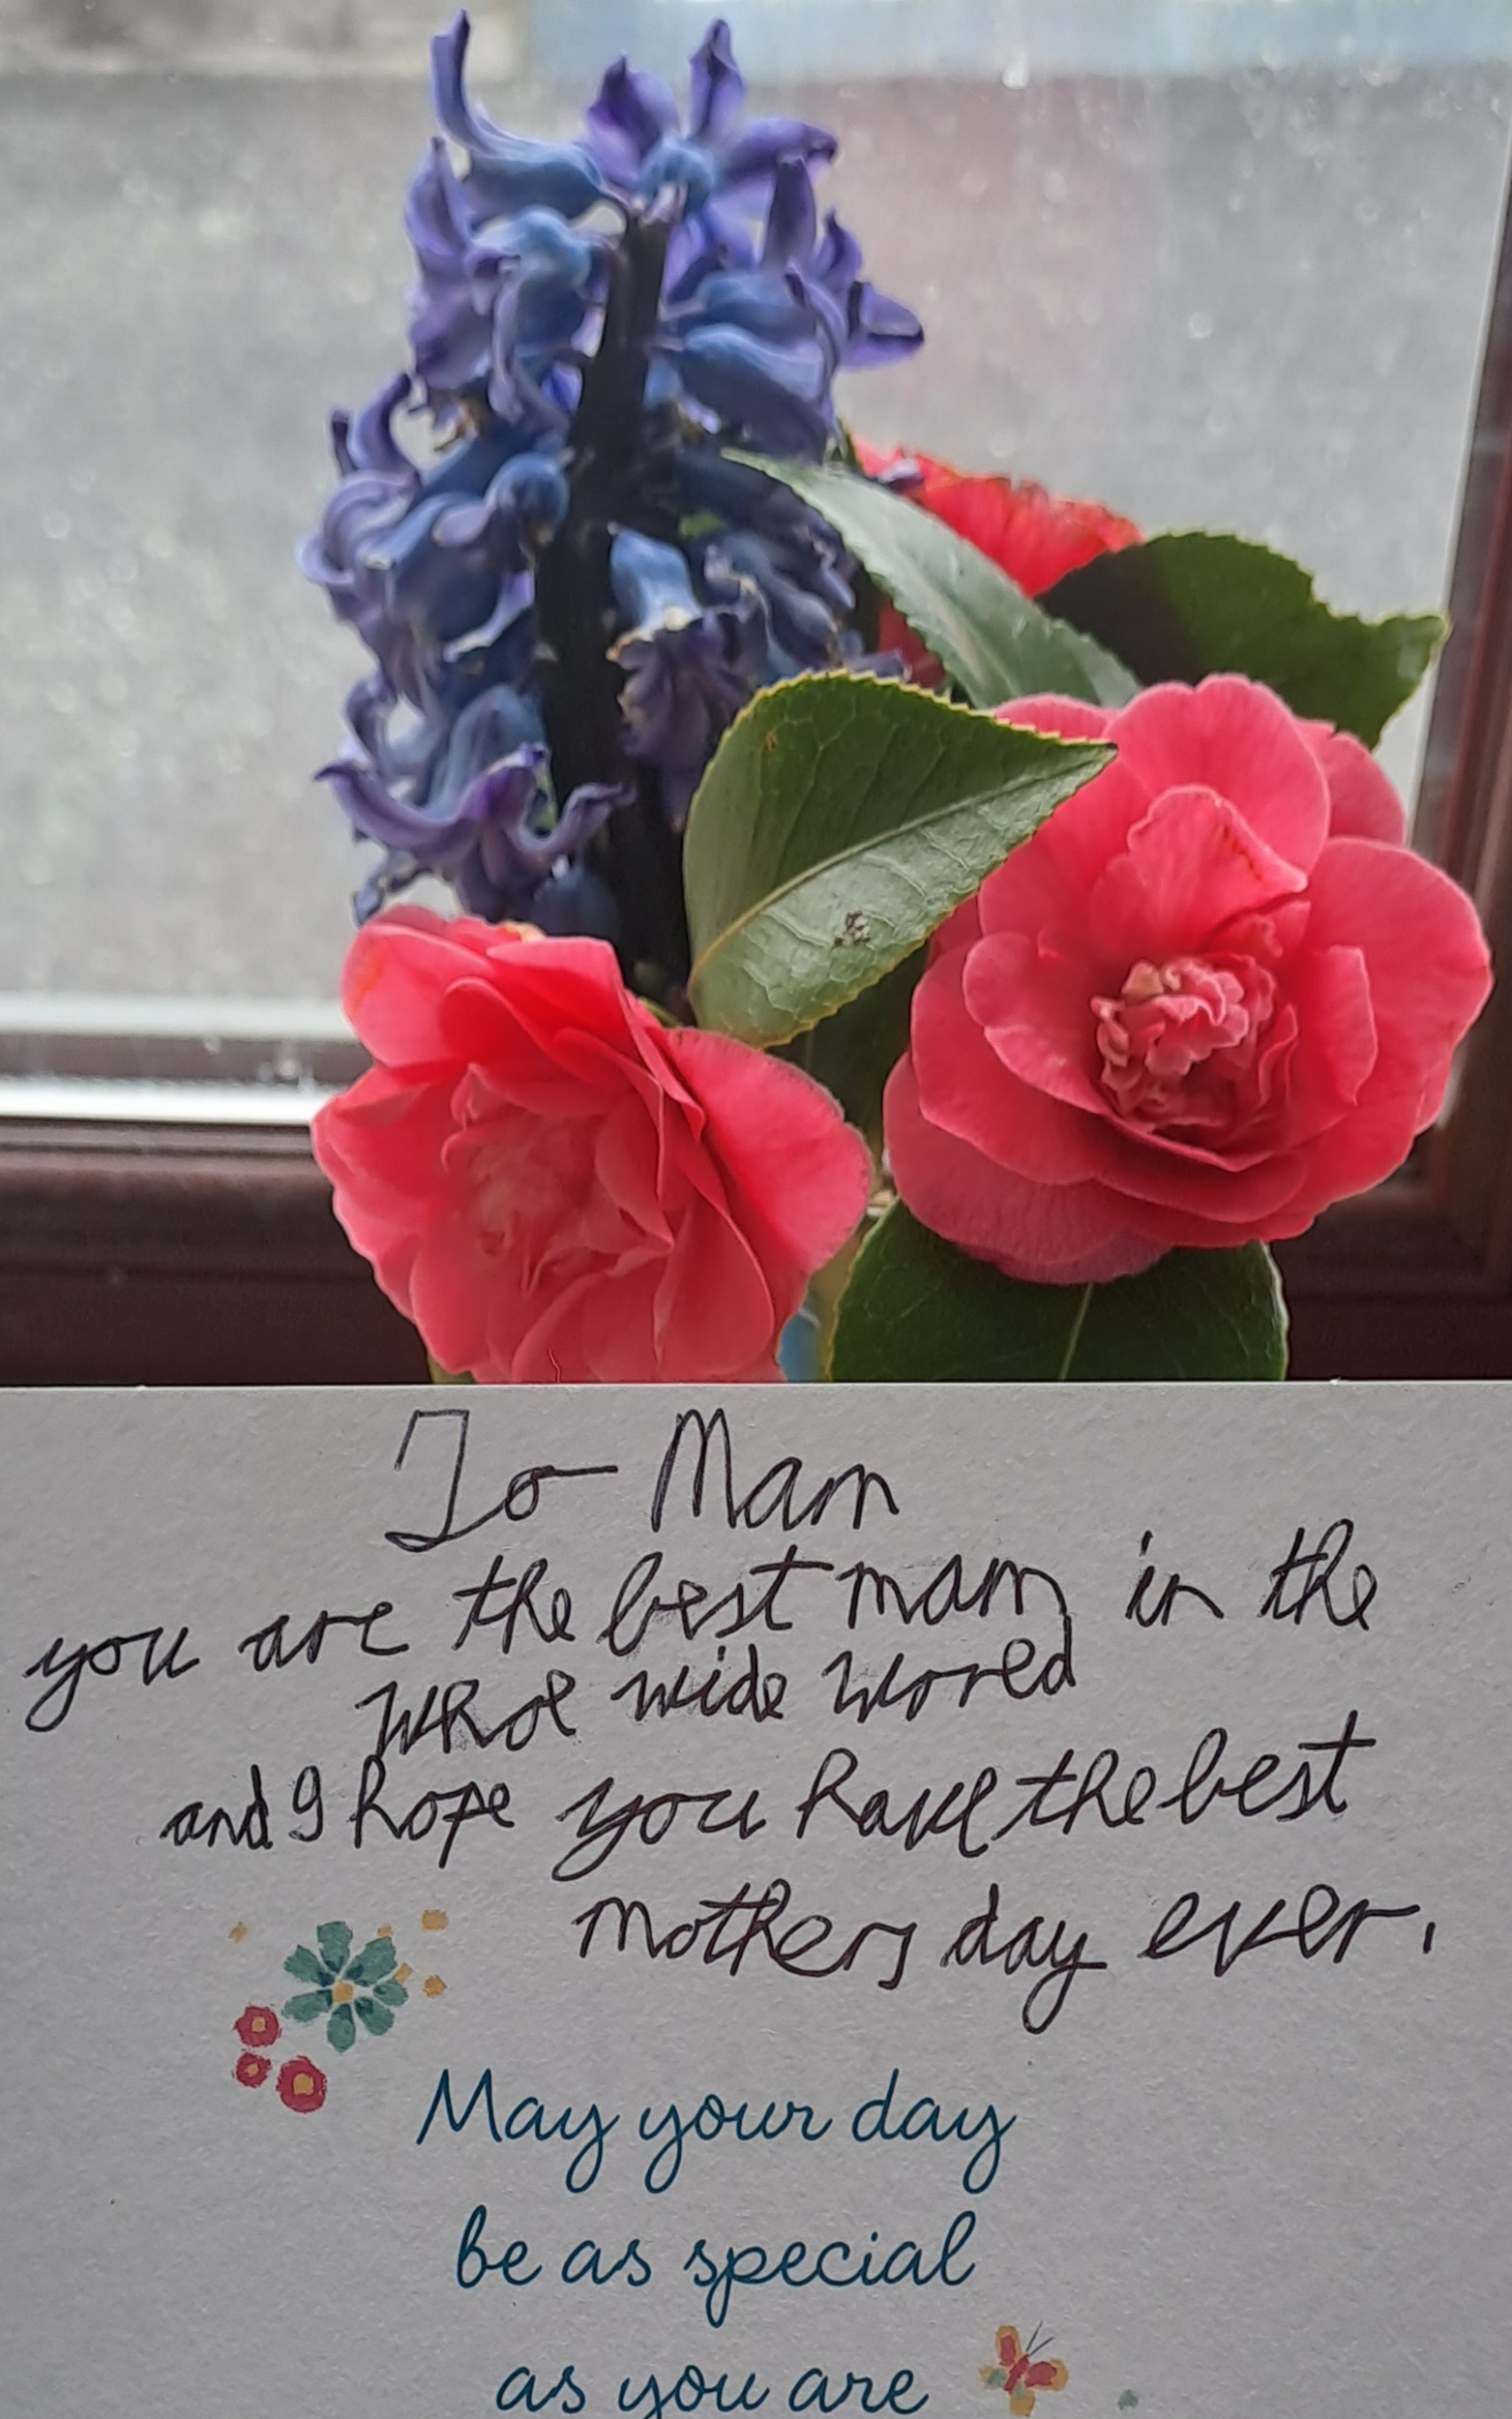 To Mam
you are the best mam in the
whole wide world
and I hope you have the best
mothers day ever.
May your day
be as special
as you are